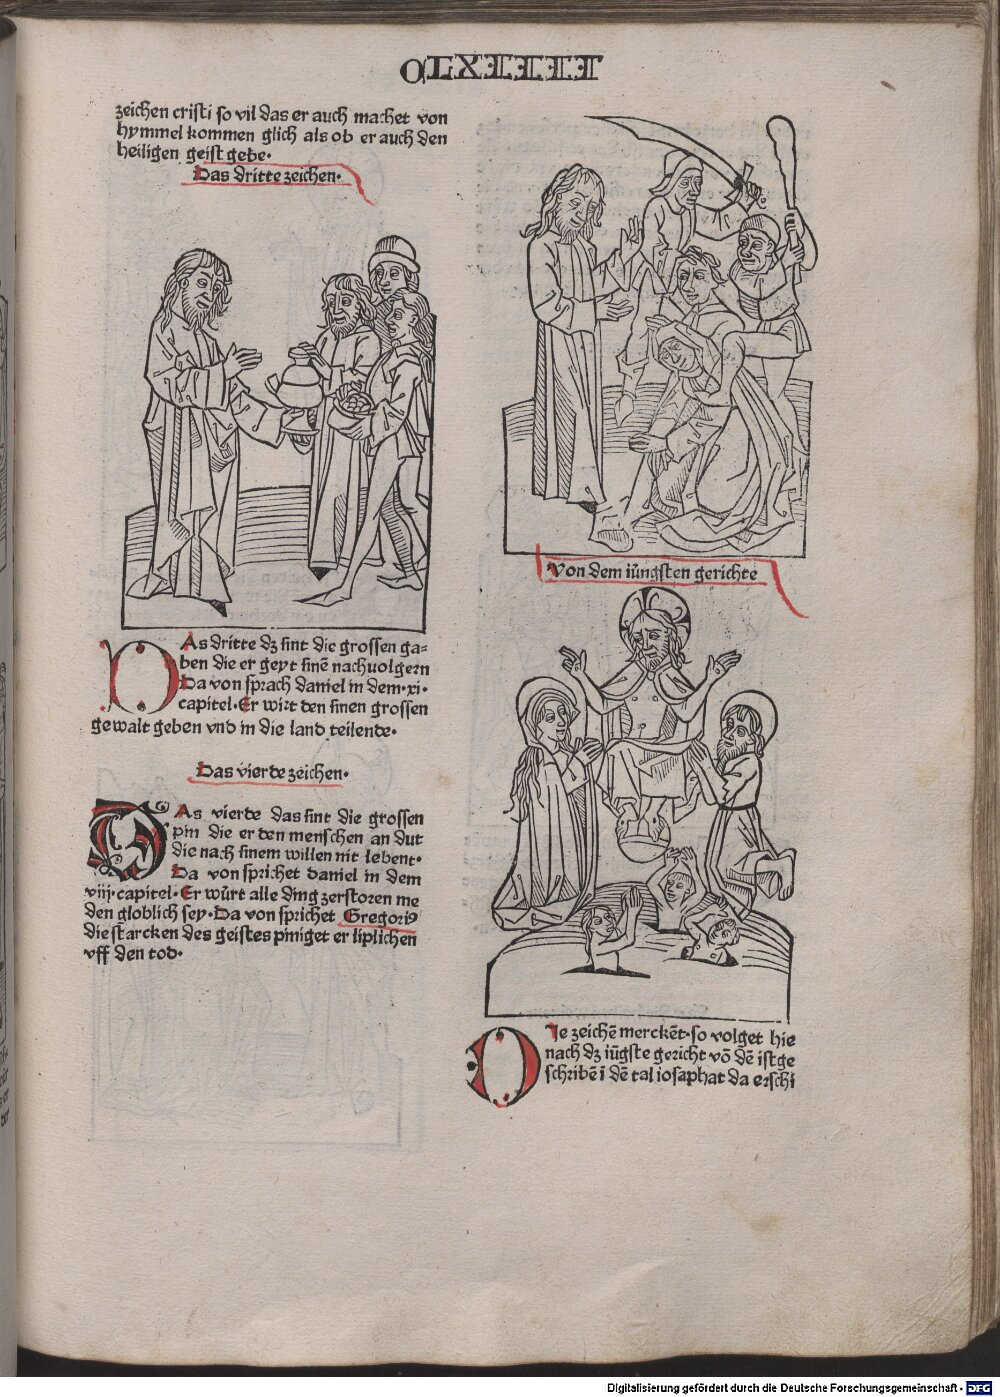 CLXIIIII
zeichen cristi so vil das er auch machet von
hymmel kommen glich als ob er auch den
heiligen geist gebe.
Das dritte zeichen.
DAs dritte dz sint die grossen ga=
ben die er geyt sinē nachuolgern
Da von sprach daniel in dem .xi.
capitel. Er wirt den sinen grossen
gewalt geben vnd in die land teilende.
Das vierde zeichen.
DAs vierde das sint die grossen
pin die er den menschen an dut
die nach sinem willen nit lebent.
Da von sprichet daniel in dem
viij. capitel. Er wůrt alle ding zerstoren me
den globlich sey. Da von sprichet Gregoriꝰ
die starcken des geistes piniget er liplichen
vff den tod.
Von dem iůngsten gerichte
DIe zeichē merckēt. so volget hie
nach dz iůgste gericht vō dē ist ge
schribē ī dē tal iosaphat da erschi
Digitalisierung gefördert durch die Deutsche Forschungsgemeinschaft - DFG